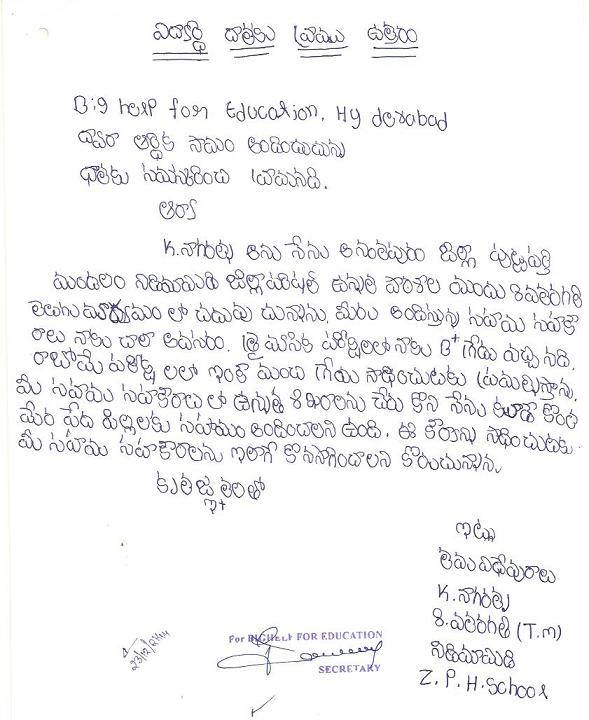 విద్యార్థి దాతలకు వ్రాయు ఉత్తరం
Big help for Education, Hyderabad
ద్వారా ఆర్థిక సాయం అందించుచున్న
దాతలకు నమస్కరించి వ్రాయునది.
ఆర్యా
K. నాగరత్న అను నేను అనంతపురం జిల్లా పుట్టపర్తి
మండలం నిడిమామిడి జిల్లాపరిషత్ ఉన్నత పాఠశాల యందు 8వతరగతి
తెలుగు మాధ్యమం లో చదువు చున్నాను. మీరు అందిస్తున్న సహాయ సహకా
రాలు నాకు చాలా అవసరం. త్రైమాసిక పరీక్షలలో నాకు B+ గ్రేడు వచ్చినది.
రాబోయే పరీక్ష లలో ఇంకా మంచి గ్రేడు సాధించుటకు ప్రయత్నిస్తాను.
మీ సహాయ సహకారాలతో ఉన్నత శిఖరాలను చేరుకొని నేను కూడా కొంత
మేర పేద పిల్లలకు సహాయం అందించాలని ఉంది. ఈ కోరికను సాధించుటకు
మీ సహాయ సహకారాలను ఇలాగే కొనసాగించాలని కోరుచున్నాను.
కృతజ్ఞతలతో
ఇట్లు
తమ విధేయురాలు
K. నాగరత్న
8.వతరగతి (T.m)
నిడిమామిడి
Z. P. H. School
For BIGHELP FOR EDUCATION
SECRETARY